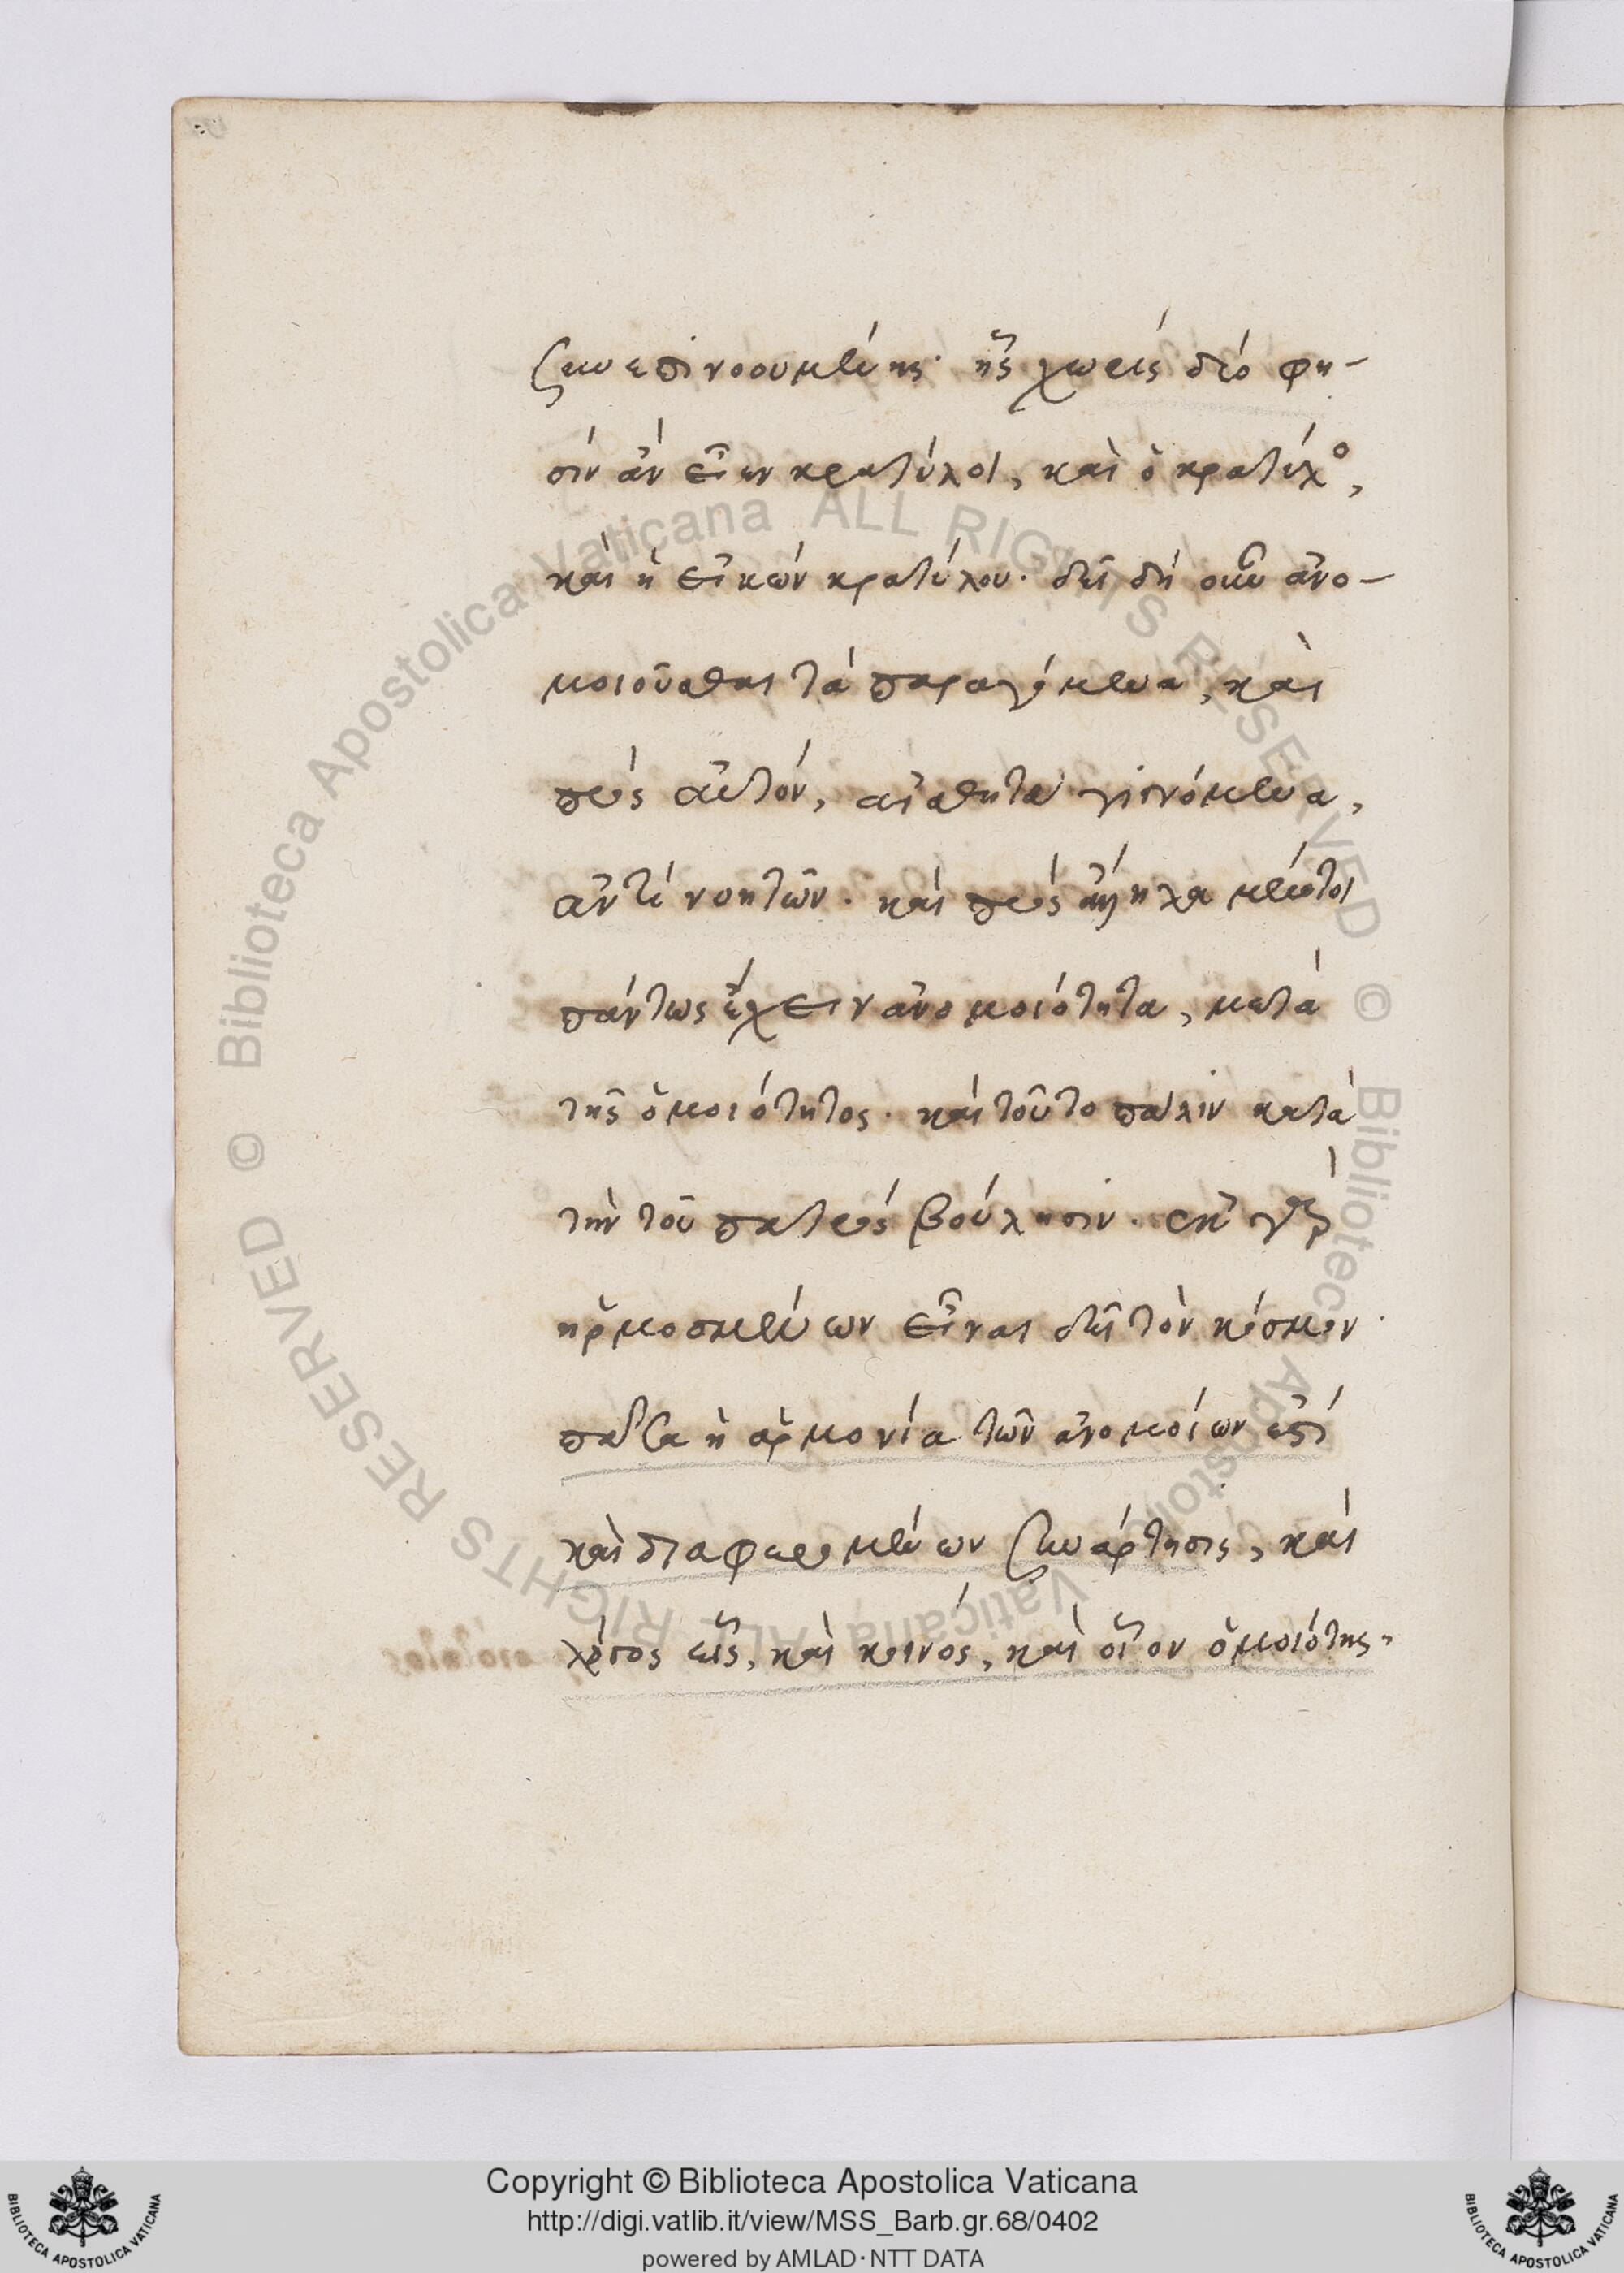 συνεπινοουμένης· ἧς χωρίς δύο φη-
σίν ἄν εἶεν κρατύλοι, καὶ ὁ κρατύλο,
καί ἡ εἰκών κρατύλου. δεῖ δή οὖν ἀνο-
μοιοῦσθαι τά παραγόμενα, καὶ
πρός αὐτόν, αἰσθητά γινόμενα,
ἀντί νοητῶν. καί πρός ἄλληλα μέντοι
πάντως ἔχειν ἀνομοιότητα, μετά
τῆς ὁμοιότητος. καί τοῦτο πάλιν κατά
τὴν τοῦ πατρός βούλησιν. ἐκ γάρ
ἡρμοσμένων εἶναι δεῖ τὸν κόσμον·
πᾶσα ἡ ἁρμονία τῶν ἀνομοίων ἐστί
καὶ διαφερομένων συνάρτησις, καί
λόγος εἷς, καὶ κοινός, καὶ οἷον ὁμοιότης,
Biblioteca Apostolica Vaticana ALL RIGHTS RESERVED ©
Biblioteca Apostolica Vaticana ALL RIGHTS RESERVED ©
Copyright © Biblioteca Apostolica Vaticana
http://digi.vatlib.it/view/MSS_Barb.gr.68/0402
powered by AMLAD·NTT DATA
BIBLIOTECA APOSTOLICA VATICANA
BIBLIOTECA APOSTOLICA VATICANA